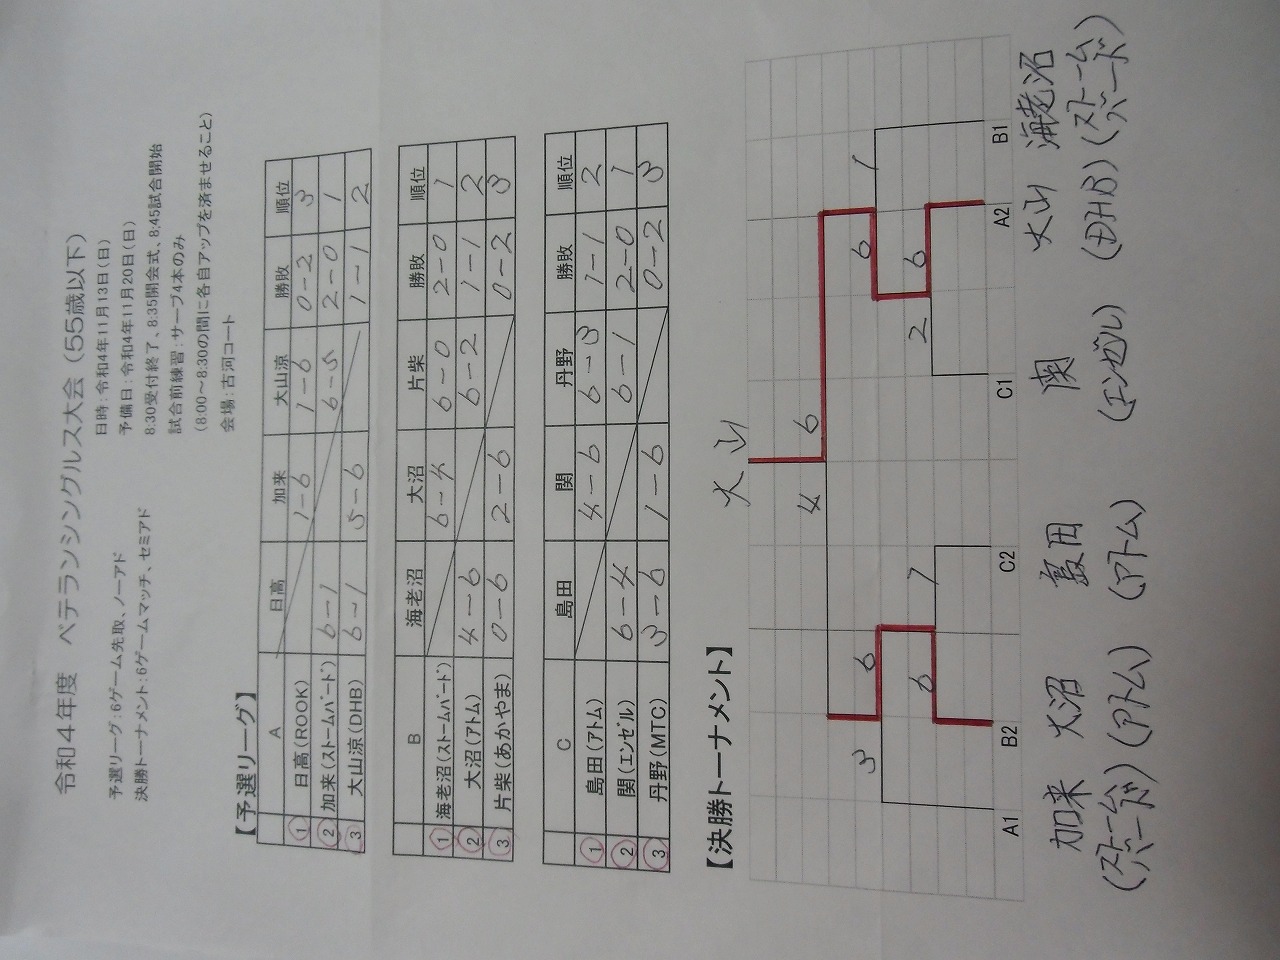 令和4年度　ベテランシングルス大会（55歳以下）
日時：令和4年11月13日（日）
予選リーグ：6ゲーム先取、ノーアド
予備日：令和4年11月20日（日）
決勝トーナメント：6ゲームマッチ、セミアド
8:30受付終了、8:35開会式、8:45試合開始
試合前練習：サーブ4本のみ
（8:00～8:30の間に各自アップを済ませること）
会場：古河コート
【予選リーグ】
A 日高 加来 大山涼 勝敗 順位
1 日高（ROOK） 1-6 1-6 0-2 3
2 加来（ストームバード） 6-1 6-5 2-0 1
3 大山涼（DHB） 6-1 5-6 1-1 2
B 海老沼 大沼 片柴 勝敗 順位
1 海老沼（ストームバード） 6-4 6-0 2-0 1
2 大沼（アトム） 4-6 6-2 1-1 2
3 片柴（あかやま） 0-6 2-6 0-2 3
C 島田 関 丹野 勝敗 順位
1 島田（アトム） 4-6 6-3 1-1 2
2 関（エンゼル） 6-4 6-1 2-0 1
3 丹野（MTC） 3-6 1-6 0-2 3
【決勝トーナメント】
大山
4 6
3 6 6 1
6 1 2 6
A1 B2 C2 C1 A2 B1
加来 大沼 島田 関 大山 海老沼
（ストームバード） （アトム） （アトム） （エンゼル） （DHB） （ストームバード）